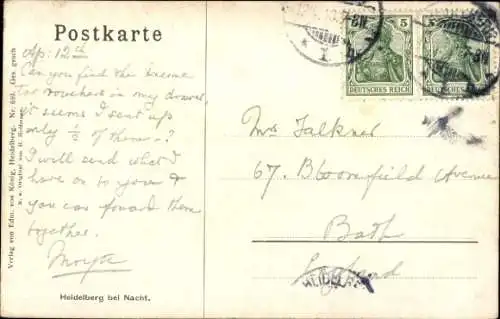 Postkarte
Ap: 12th
Can you find the
too vouchers in my drawer,
it seems I sent up
only ½ of them - ?
I will send what I
have on to you &
you can forward them
together.
Heidelberg bei Nacht.
Verlag von Edm. von König, Heidelberg, Nr. Ges. gesch
5
5
DEUTSCHES REICH
DEUTSCHES REICH
Mrs Falkner
67. Bloomfield Avenue
Bath
England